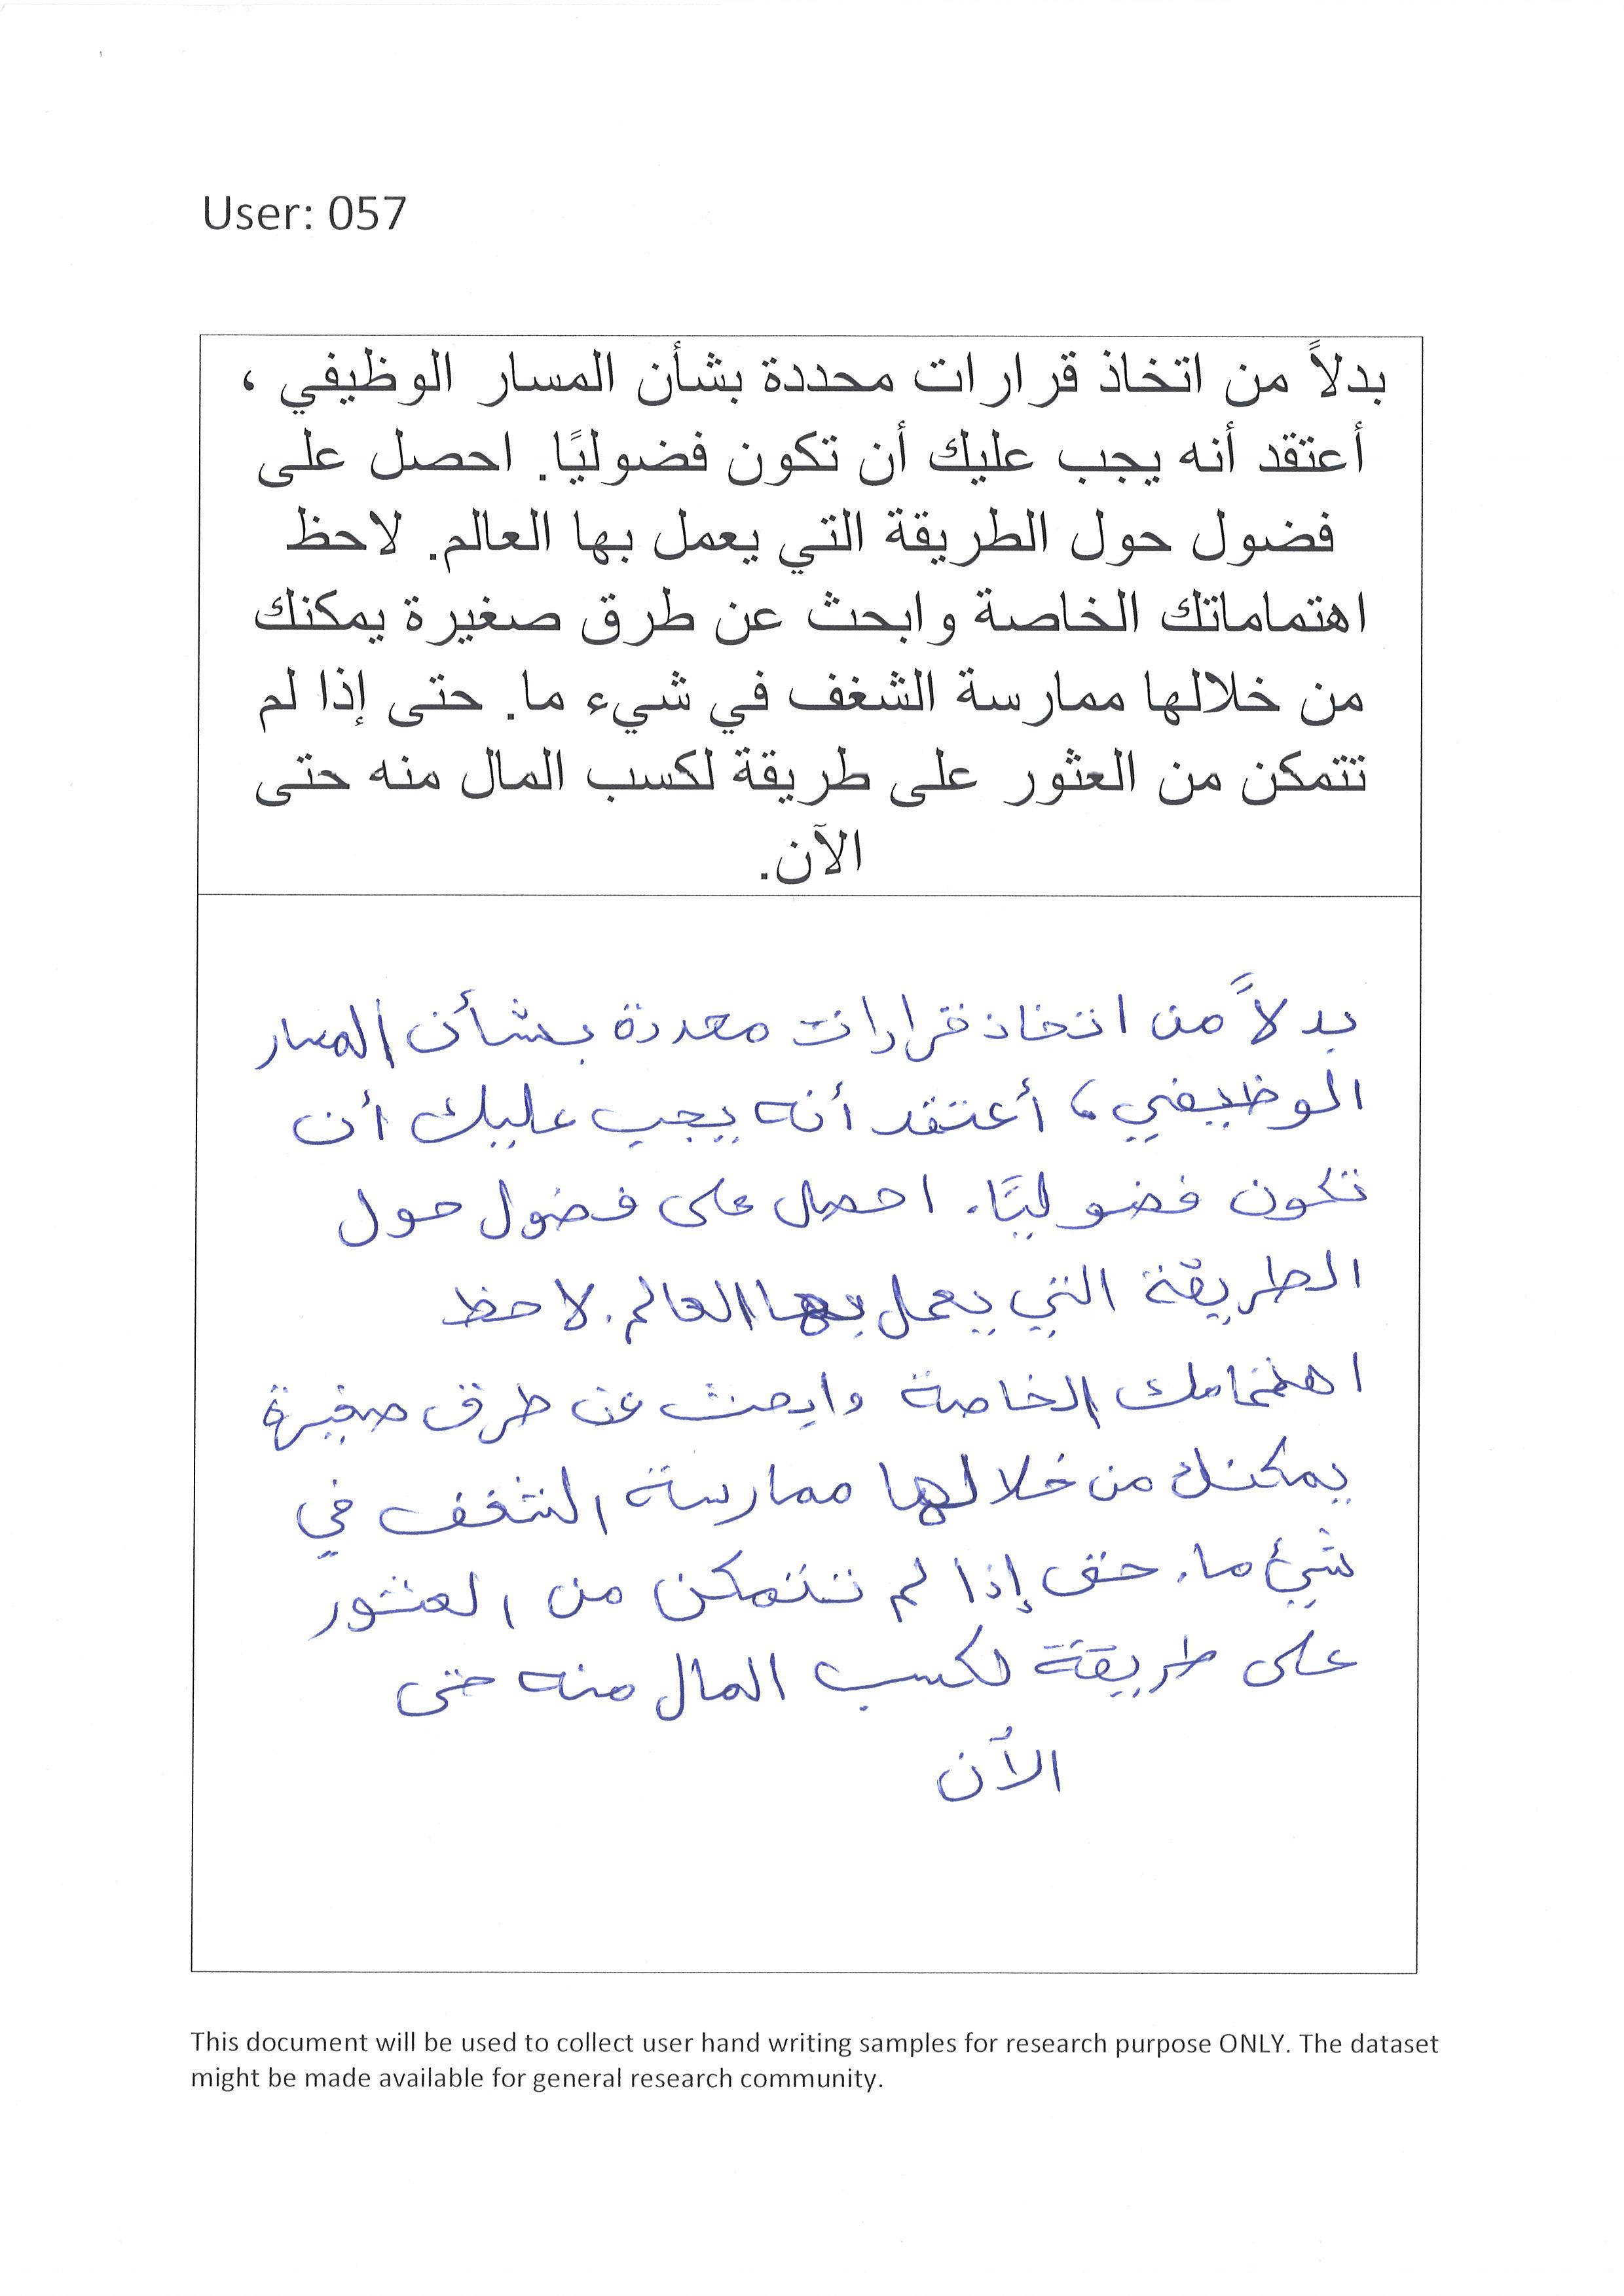 User: 057
بدلاً من اتخاذ قرارات محددة بشأن المسار الوظيفي ،
أعتقد أنه يجب عليك أن تكون فضوليًا. احصل على
فضول حول الطريقة التي يعمل بها العالم. لاحظ
اهتماماتك الخاصة وابحث عن طرق صغيرة يمكنك
من خلالها ممارسة الشغف في شيء ما. حتى إذا لم
تتمكن من العثور على طريقة لكسب المال منه حتى
الآن.
بدلاً من اتخاذ قرارات محددة بشأن المسار
الوظيفي، أعتقد أنه يجب عليك أن
تكون فضوليًا. احصل على فضول حول
الطريقة التي يعمل بها العالم. لاحظ
اهتمامك الخاصة وابحث عن طرق صغيرة
يمكنك من خلالها ممارسة الشغف في
شيئ ما. حتى إذا لم تتمكن من العثور
على طريقة لكسب المال منه حتى
الآن
This document will be used to collect user hand writing samples for research purpose ONLY. The dataset
might be made available for general research community.